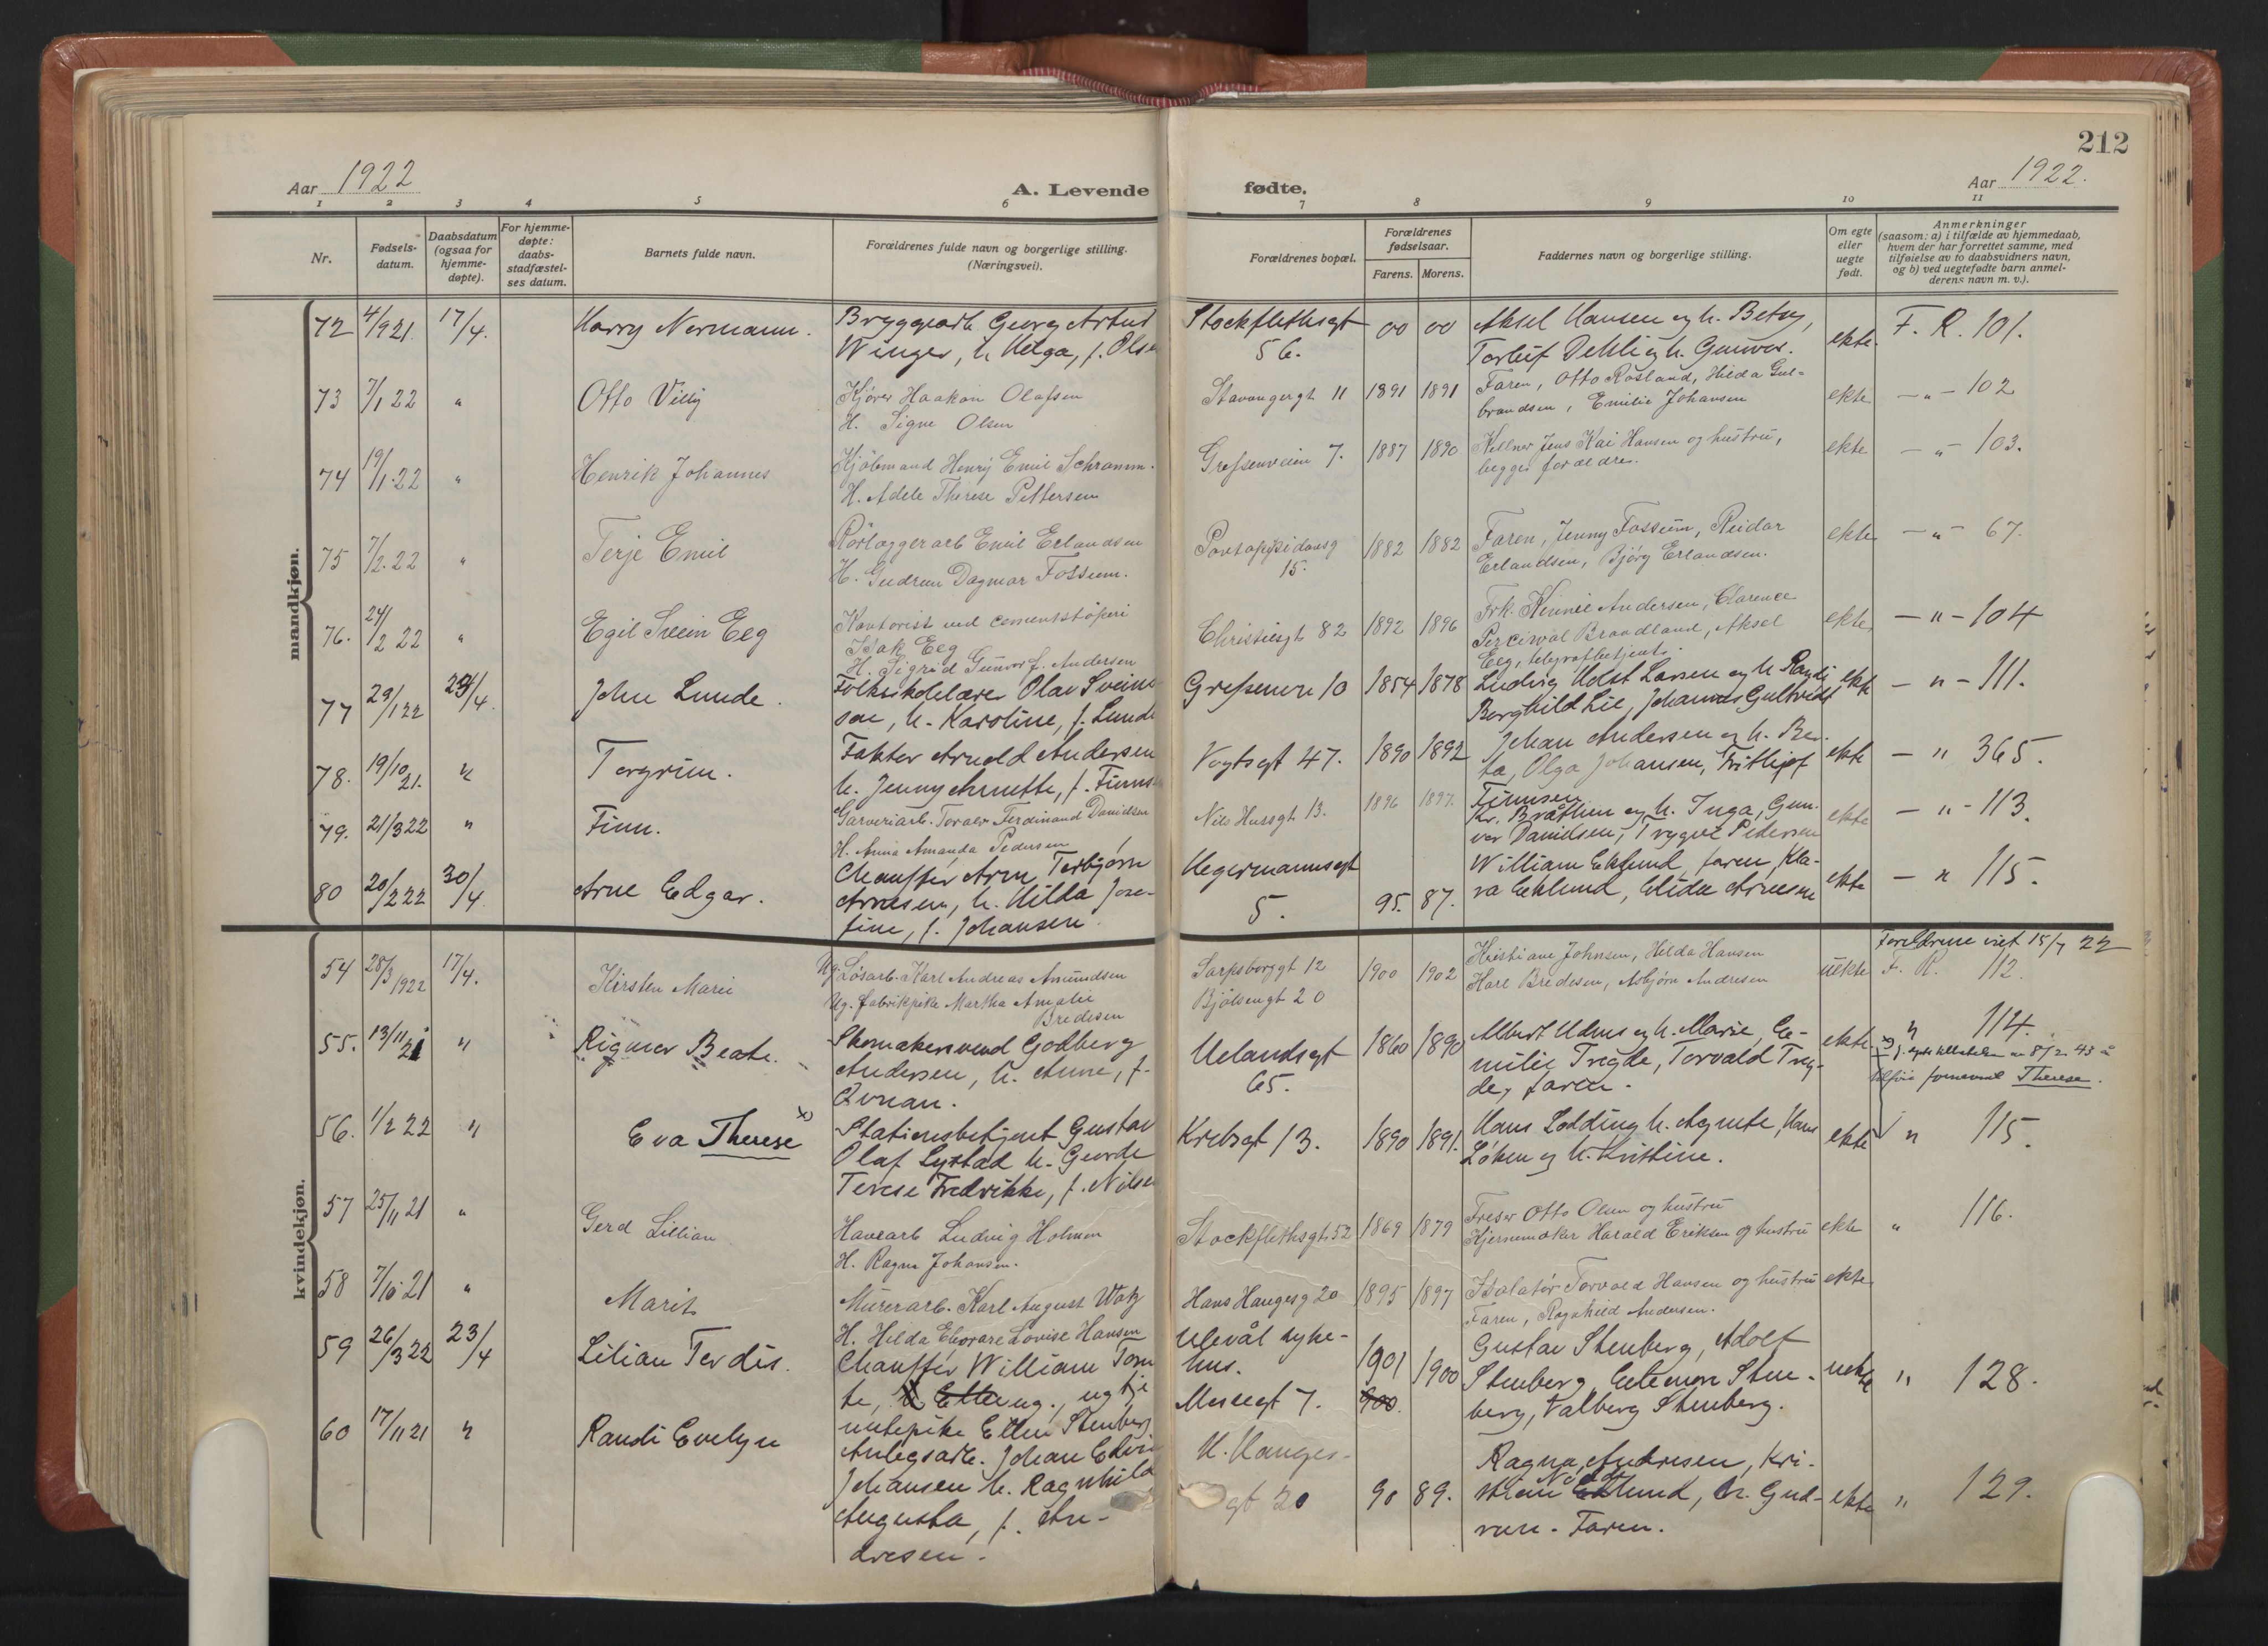 212
Aar 1922
A. Levende
fødte.
Aar 1922.
1 2 3 4 5 6 7 8 9 10 11
Nr.
Fødsels-
datum.
Daabsdatum
(ogsaa for
hjemme-
døpte).
For hjemme-
døpte:
daabs-
stadfæstel-
ses datum.
Barnets fulde navn.
Forældrenes fulde navn og borgerlige stilling.
(Næringsvei).
Forældrenes bopæl.
Forældrenes
fødselsaar.
Farens. Morens.
Faddernes navn og borgerlige stilling.
Om egte
eller
uegte
født.
Anmerkninger
(saasom: a) i tilfælde av hjemmedaab,
hvem der har forrettet samme, med
tilføielse av to daabsvidners navn,
og b) ved uegtefødte barn anmel-
derens navn m. v.).
mandkjøn.
72 4/9 21. 17/4. Harry Normann. Bryggearb. Georg Artur Stockflethsgt 00 00 Aksel Hansen og h. Betsy, ekte. F. R. 101.
Winger, h. Helga, f. Olsen 56. Torleif Dehli og h. Gunvor.
73 7/1 22 " Otto Villy Kjører Haakon Olafsen Stavangergt 11 1891 1891 Faren, Otto Rosland, Hilda Gul= ekte — " — 102
H. Signe Olsen brandsen, Emilie Johansen
74 19/1 22 " Henrik Johannes Kjøbmand Henry Emil Schramm. Grefsenveien 7. 1887 1890 Kellner Jens Kai Hansen og hustru, ekte — " — 103.
H. Adele Therese Pettersen begges forældre.
75 7/2 22 " Terje Emil Rørlæggerarb Emil Erlandsen Pontoppidansg 1882 1882 Faren, Jenny Fossum, Reidar ekte — " — 67.
H. Gudrun Dagmar Fossum. 15. Erlandsen, Bjørg Erlandsen.
76. 24/2 22 " Egil Svein Eeg Kontorist ved cementstøperi Christiesgt 82 1892 1896 Frk. Andersen, Clarence ekte — " — 104
Isak Eeg Percival Brandland, Aksel
H. Sigrid Gunvor f. Andersen Eeg, telegrafbetjent.
77 29/1 22 23/4. John Lunde. Olav Svein- Grefsenvn 10 1854 1878 Ludvig Holst Larsen og h. Randi ekte — " — 111.
son, h. Karoline, f. Lunde Borghild Lie, Johannes
78. 19/10 21. " Torgrim. Faktor Arnold Andersen Vogtsgt 47. 1890 1892 Johan Andersen og h. Ber- ekte — " 365.
h. Jenny Annette, f. ta, Olga Johansen, Fritjof
79. 21/3 22 " Finn. Garveriarb. Toralv Ferdinand Davidsen Nils Hussgt 13. 1896 1897. Kr. Bråthen og h. Inga, Gun- ekte — " — 113.
H. Anna Amanda Pedersen vor Davidsen, Trygve Pedersen
80 20/2 22 30/4 Arne Edgar. Chauffør Arne Torbjørn Hegermannsgt William Eklund, faren, Kla- ekte — " 115.
Arnesen, h. Hilda Jose- 5. 95. 87. ra Eklund, Arnesen
fine, f. Johansen.
kvindekjøn.
Foreldrene viet 15/7 22
54 28/3 1922 17/4. Kirsten Marie Ug. Løsarb. Karl Andreas Amundsen Sarpsborggt 12 1900 1902 Kristiane Johnsen, Hilda Hansen uekte F. R. 112.
Ug. fabrikpike Martha Amalie Bjølsengt 20 Karl Bredesen, Asbjørn Andresen
Bredesen
55. 13/11 21 " Rigmor Beate. Skomakersvend Godberg Uelandsgt 1860 1890 Albert og h. Marie, E- ekte. " 114.
Andersen, h. Anne, f. 65. milie Trygde, Torvald Tryg-
de, faren.
tilføie fornavnet Therese.
56. 1/2 22 " Eva Therese x Stationsbetjent Gustav Krebsgt 13. 1890 1891. Hans Lodding h. Agnete, Hans ekte " 115.
Olaf Lystad h. Løken og h. Kristine.
Terese Fredrikke, f. Nilsen
57 25/11 21 " Gerd Lillian Havearb Ludvig Holmen Stockflethsgt. 52 1869 1879 Freser Otto Olsen og hustru ekte " 116.
H. Ragna Johansen. Harald Eriksen og hustru
58 7/10 21 " Marit Murerarb. Karl August Hans Haugesg 20 1895 1897 Isolatør Torvald Hansen og hustru ekte
H. Hilda Lovise Hansen Faren, Ragnhild Andersen.
59 26/3 22 23/4 Lilian Tordis. Chauffør William Ulevål syke- 1901 1900 Gustav Stenberg, Adolf uekte " 128.
te, ug., ug tje hus. 900. Stenberg, Sten-
nestepike Ellen Stenberg. Mosegt 7. berg, Valborg Stenberg.
60 17/11 21 " Randi Evelyn Anlegsarb. Johan Edvin H. Hauges- 90 89. Ragna Andresen, Kri- ekte " 129.
Johansen h. Ragnhild gt 20 stian Gud-
Augusta, f. An- run. Faren.
dresen.